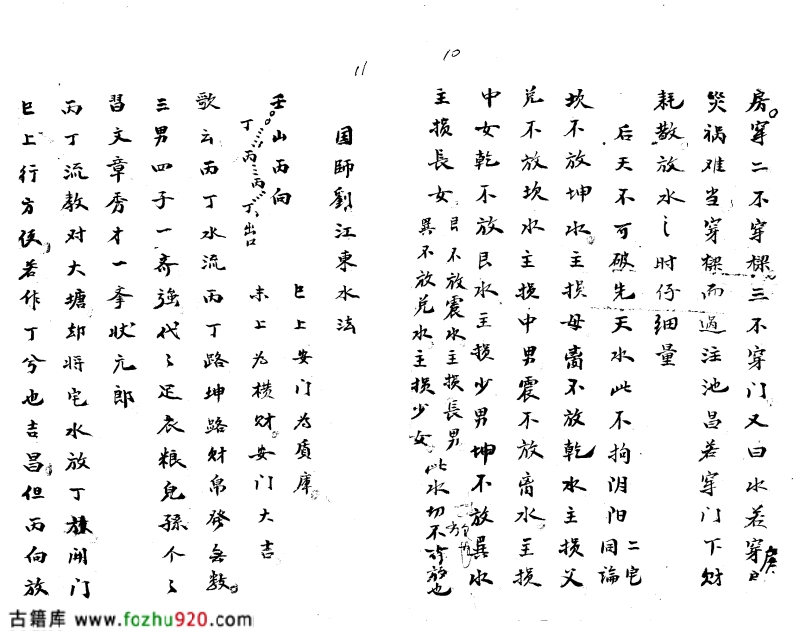 10
房穿二不穿樑三不穿门又曰水若穿房
災祸难当穿樑而過注池昌若穿门下财
耗散放水之时仔细量
后天不可破先天水此不拘阴阳二宅同論
坎不放坤水主损母离不放乾水主损父
兑不放坎水主损中男震不放离水主损
中女乾不放艮水主损少男坤不放巽水
主损長女艮不放震水主损長男
巽不放兑水主损少女此水切不可放也
11
国師劉江東水法
壬山丙向
丁丙丙丁出口
巳上安门为質庫
未上为横财安门大吉
歌云丙丁水流丙丁路坤路财帛發無数
三男四子一齊強代々足衣粮兒孫个々
習文章秀才一舉状元郎
丙丁流教对大塘却将宅水放丁旗開门
巳上行方位若作丁兮也吉昌但丙向放
古籍库 www.fozhu920.com